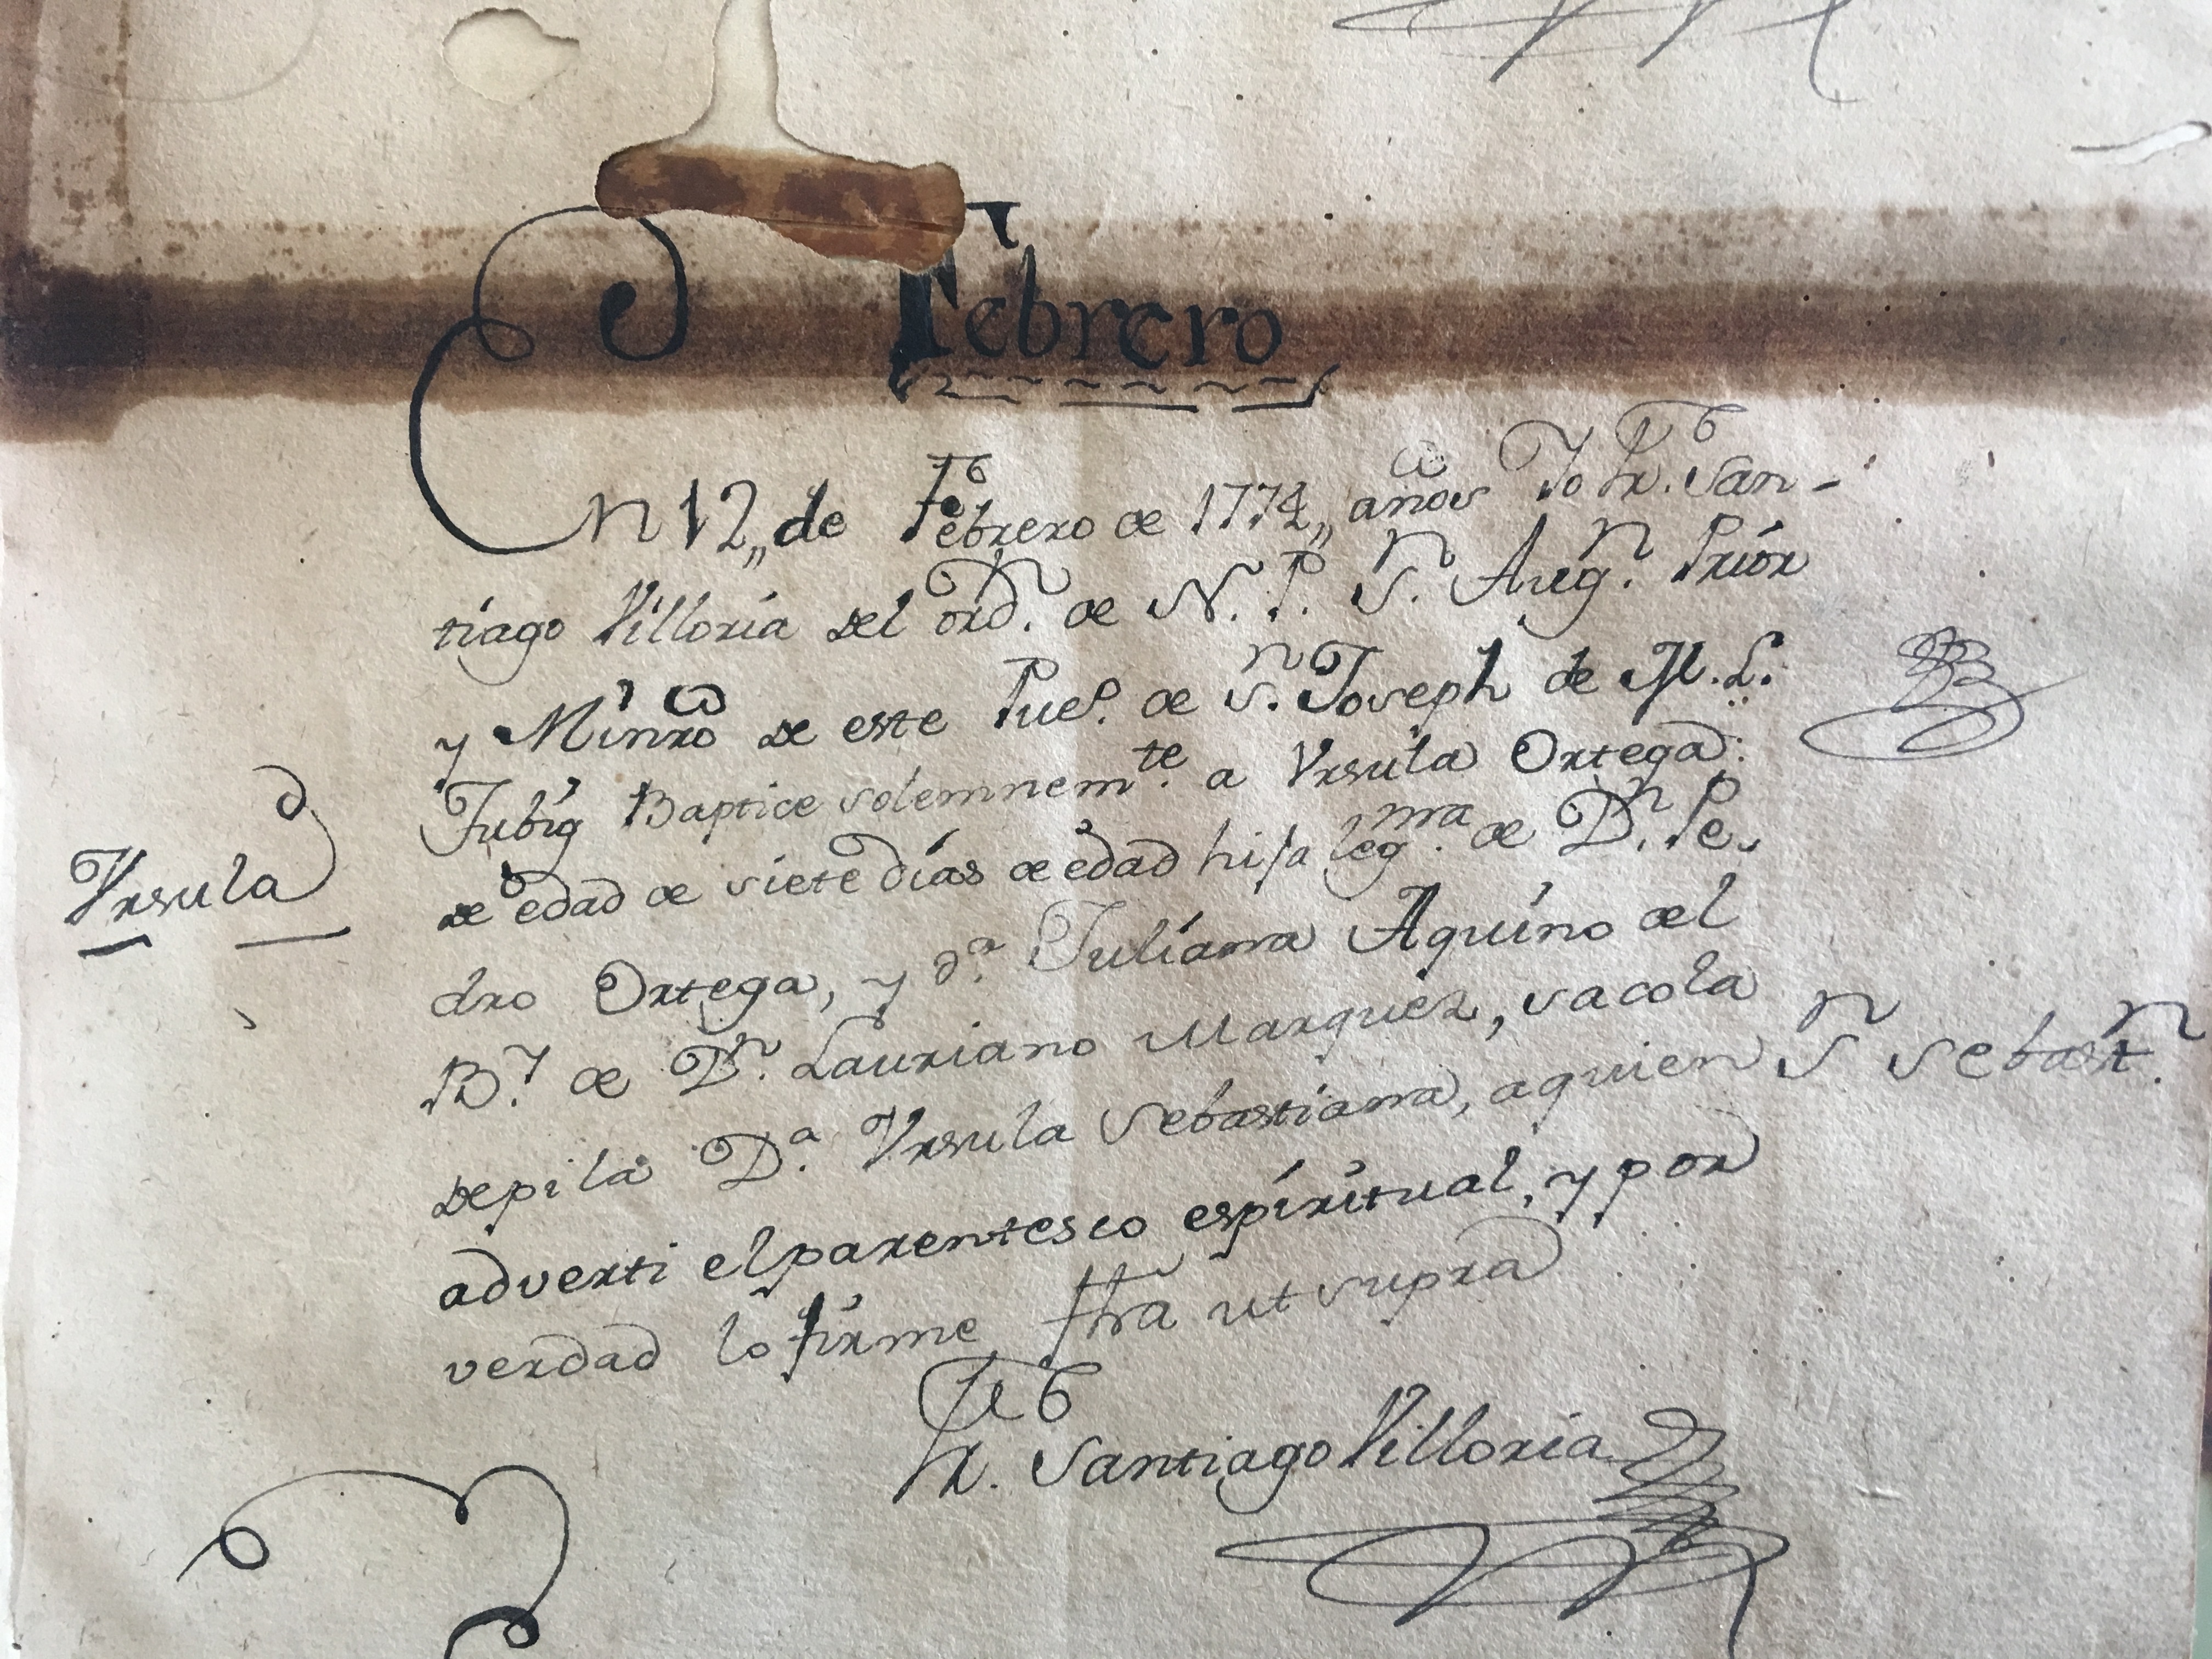 Febrero
En 12,, de Febrero de 1774,, años Yo Fr. San-
tiago Villoria del ord.n de N. P. S.n Aug.n Prior
y Minrõ de este Pueº. de S.n Joseph de M. L.
Tubig Baptice solemnem.te a Vrsula Ortega:
de edad de siete días de edad hija leg.ma de D.n Pe-
Vrsula
dro Ortega, y d.a Juliana Aquino del
B.y de D.n Lauriano Marquez, sacola
depila D.a Vrsula Sebastiana, aquien S.n Sebast.n
adverti el parentesco espíritual, y por
verdad lo firme fha ut supra
Fr. Santiago Villoria